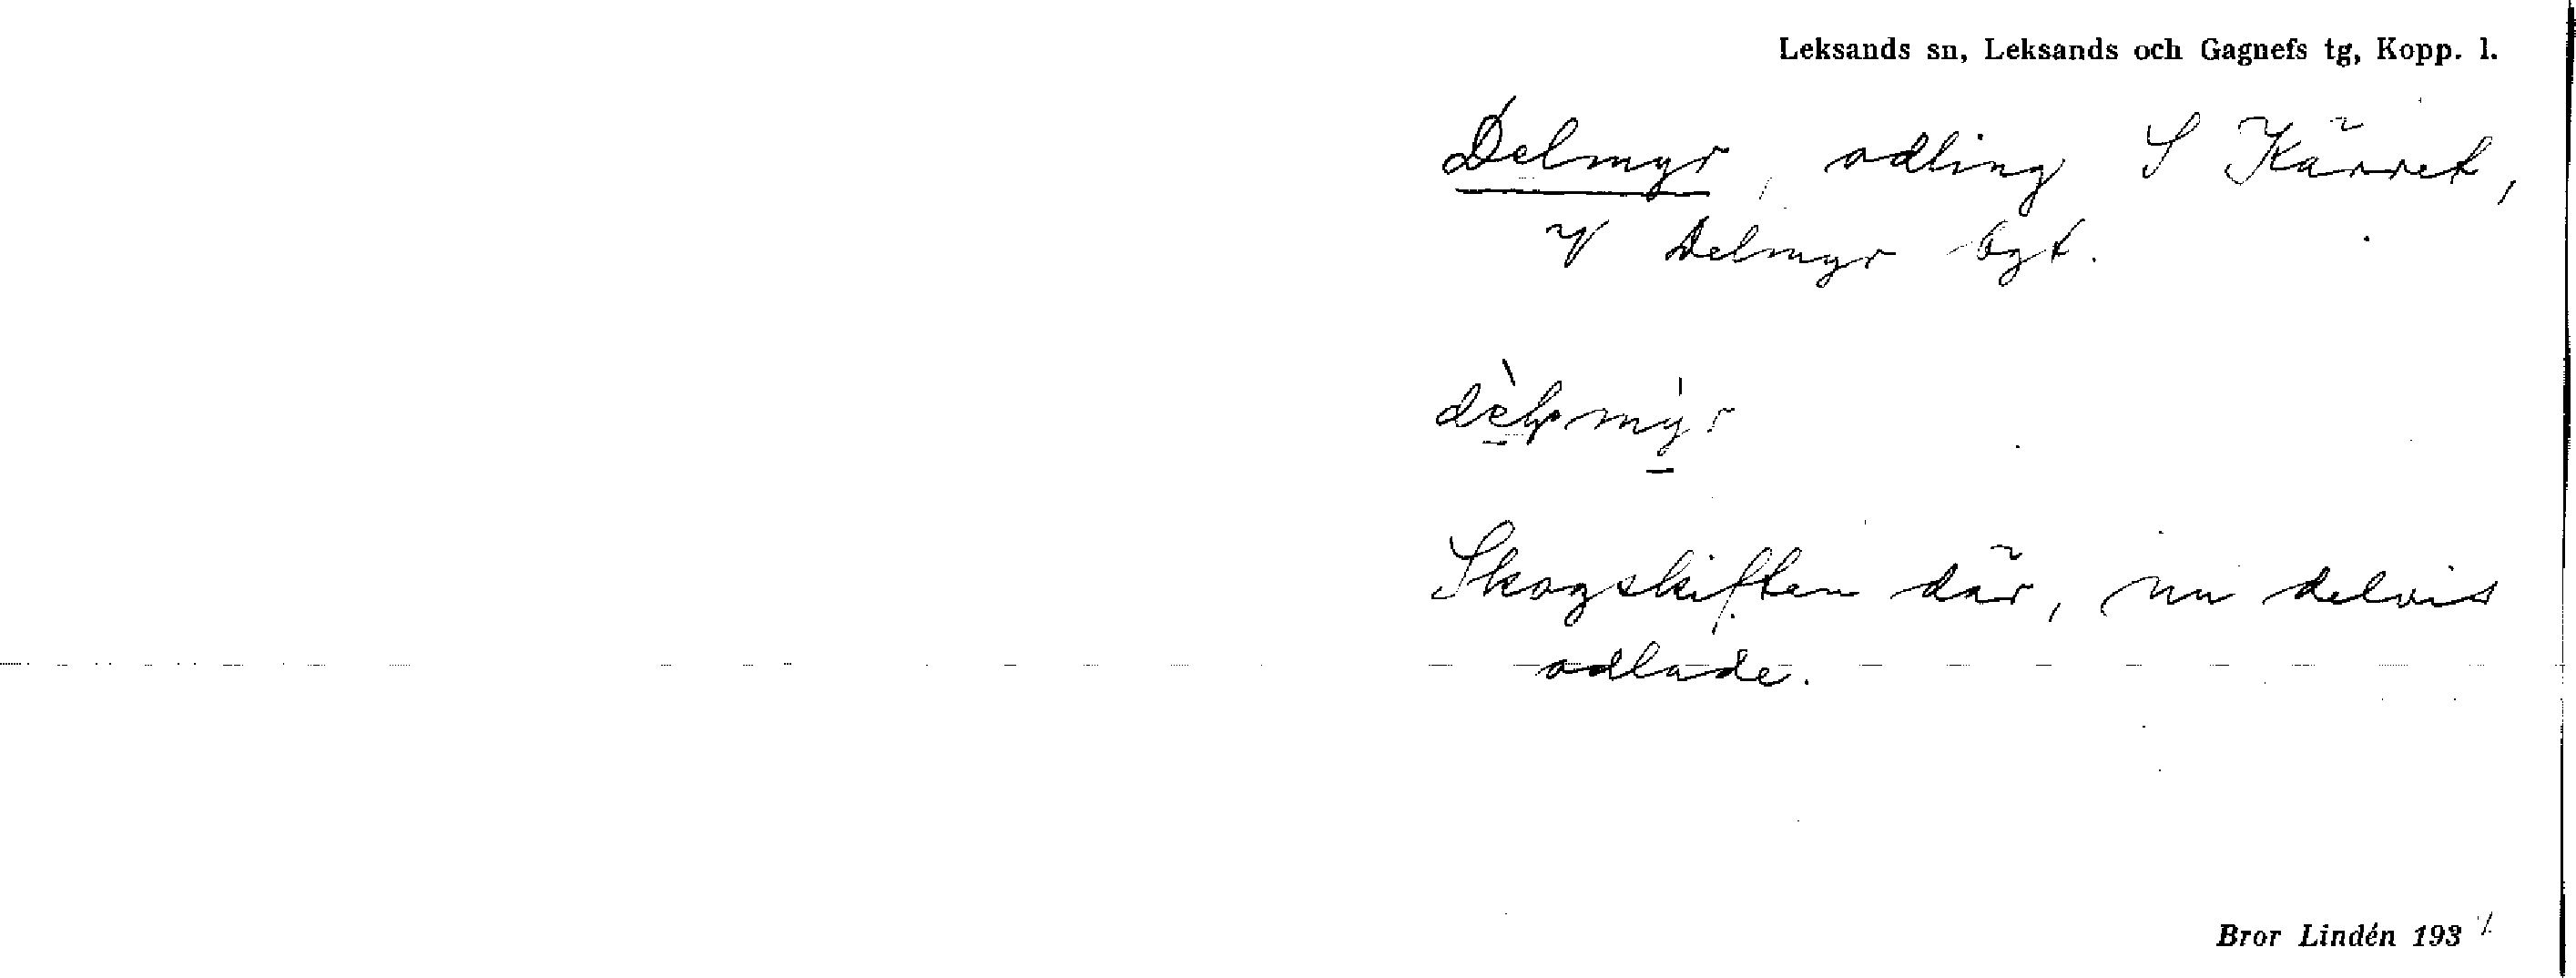 Leksands sn, Leksands och Gagnefs tg, Kopp. l.
Delmyr, odling S Kärret,
Delmyr bgt.
dèlmy̆r
Skogskiften där, nu delvis
odlade.
Bror Lindén 193